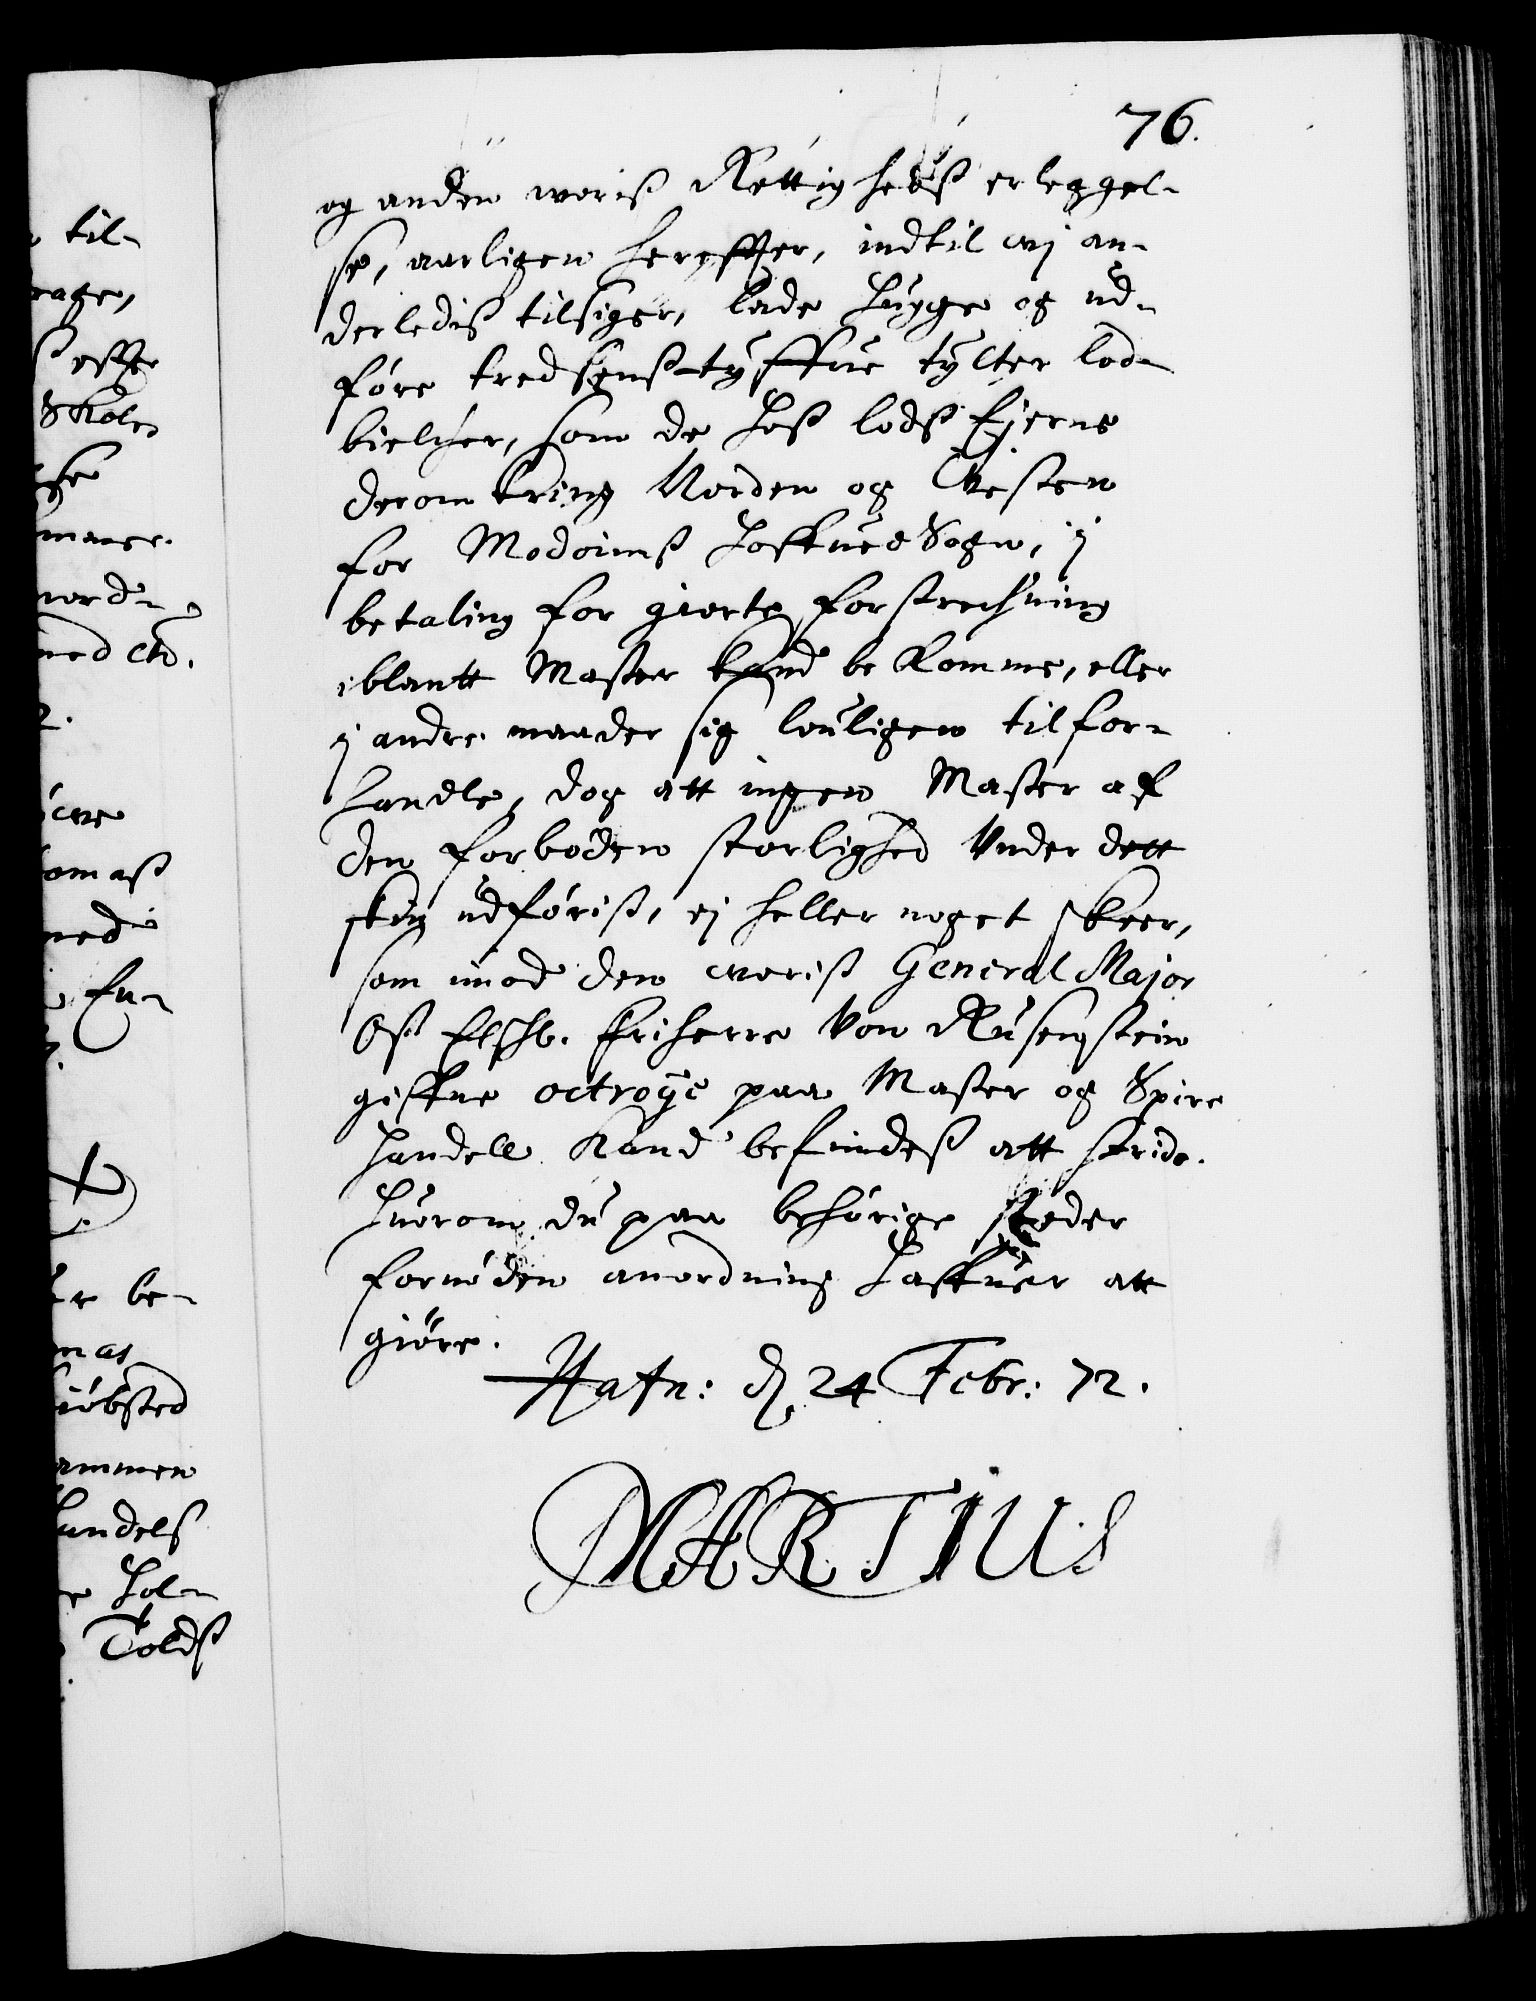 76.
og anden woriß Rettigheds erleggel-
se, aarligen herefter, indtil wj an-
derlediß tilsiger, lade hugge og ud-
føre tredsenßtyffue tylter lod-
bielcher, som de hoß lodß Eierne
deromkring Norden og Westen
for Modoimß hoffued Sogn, i
betaling for giorte forstrechning
iblantt Master kand bekomme, eller
i andre maader sig louligen tilfor-
handle, dog att ingen Master af
den forboden storlighed Under dett
skin udføriß, ej heller noget skeer,
som imod den woriß General Major
Oß Elshl. Friherre Von Rusenstein
giffne octroÿe paa Master og Spire
handell kand befindeß att stride.
huorom du paa behørige steder
fornøden anordning haffuer att
giøre.
Hafn: d. 24 Febr: 72.
MARTIUS
til-
efter
Skole
ned etc.
omaß
ned
be-
mas
kiøbsted
ammen
handels
hol-
Toldß